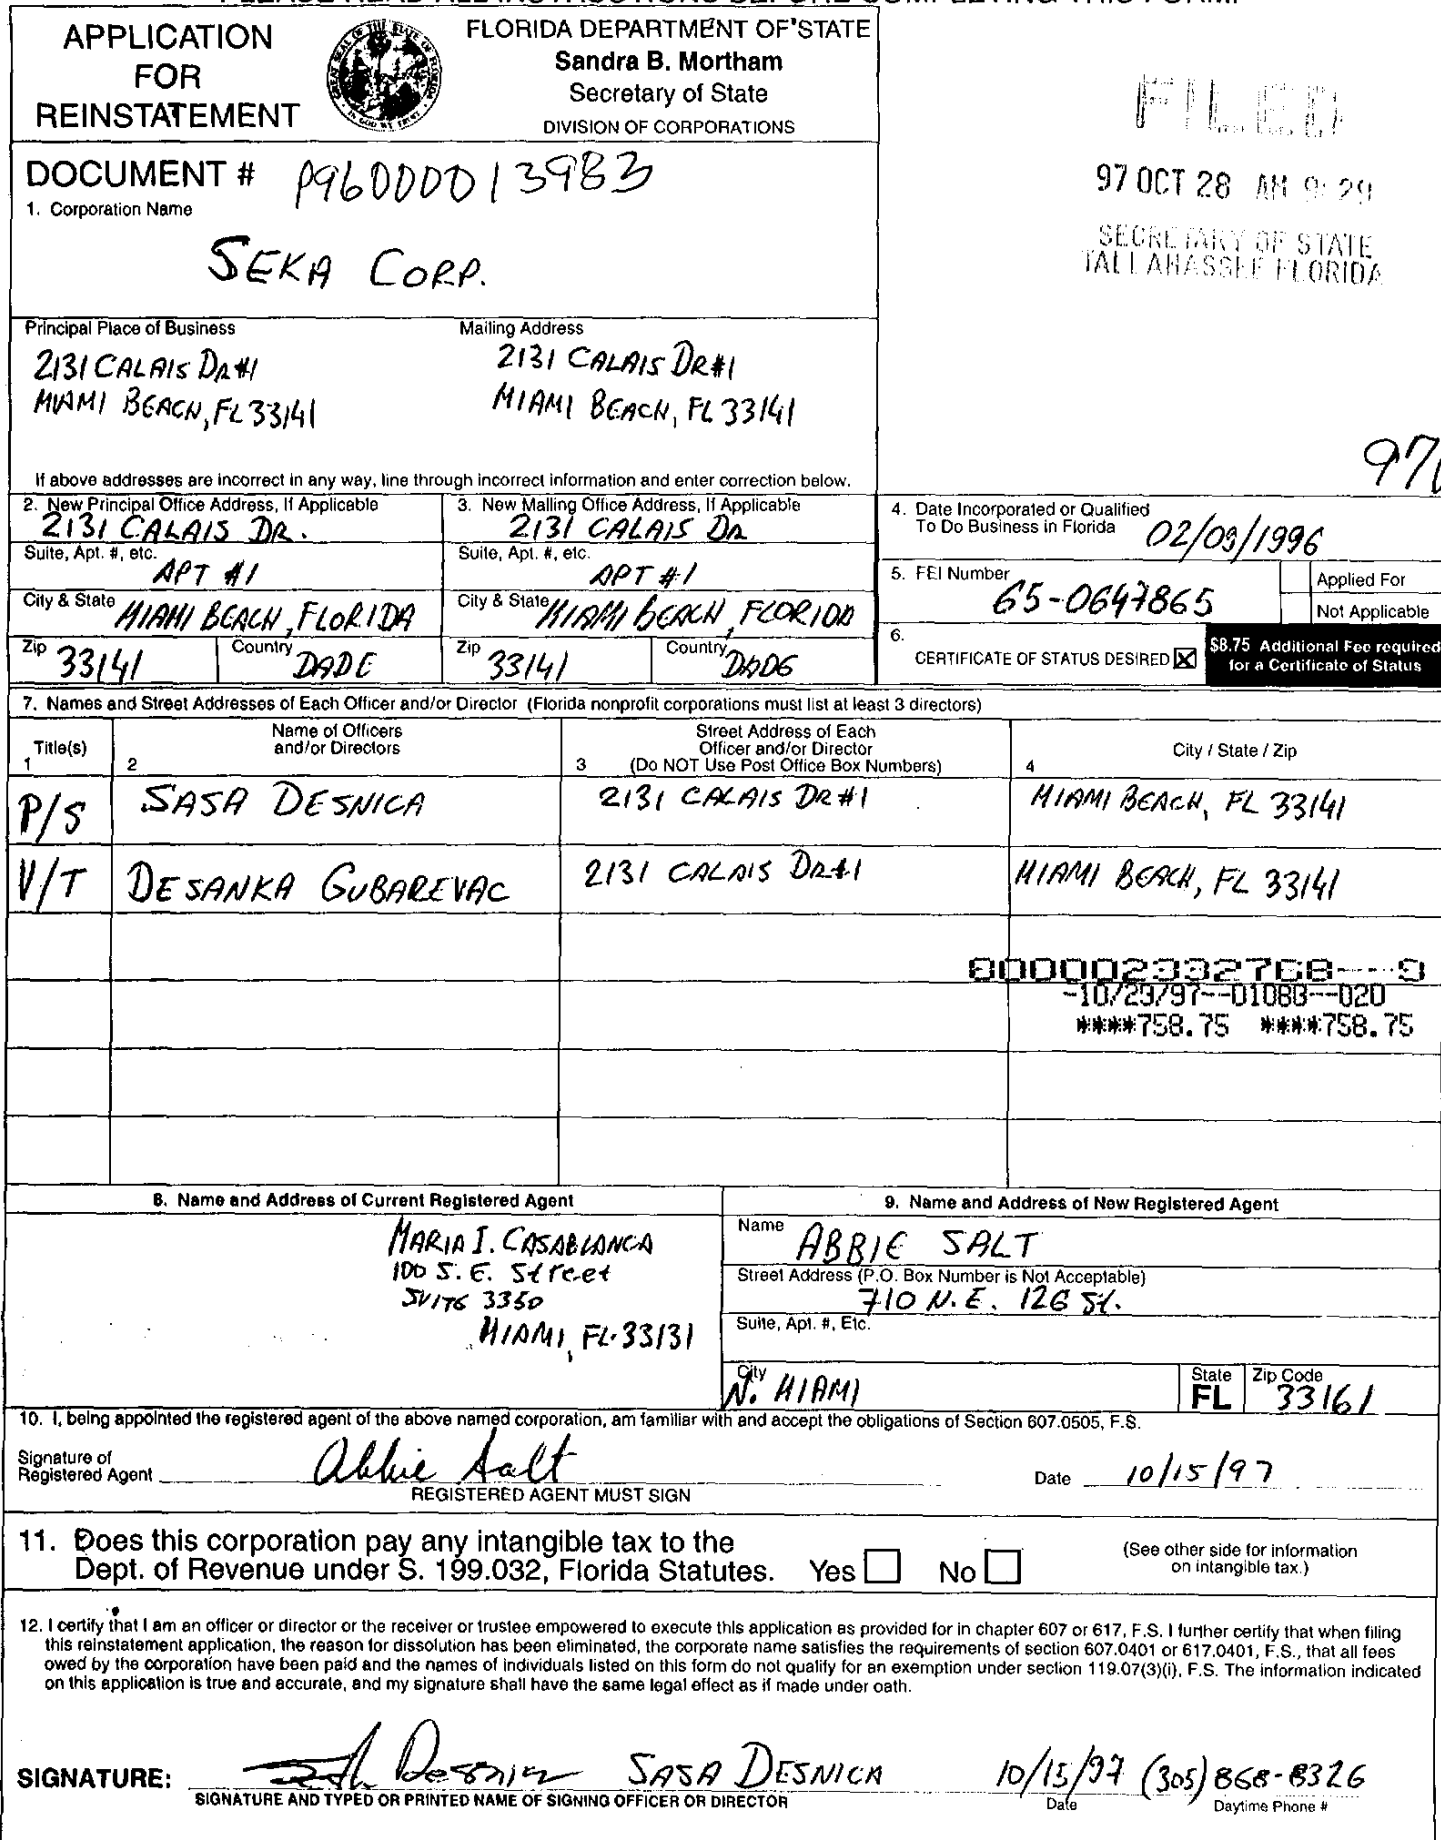 PLEASE READ ALL INSTRUCTIONS BEFORE COMPLETING THIS FORM.
APPLICATION
FOR
REINSTATEMENT
FLORIDA DEPARTMENT OF STATE
Sandra B. Mortham
Secretary of State
DIVISION OF CORPORATIONS
FILED
97 OCT 28 AM 9:29
SECRETARY OF STATE
TALLAHASSEE FLORIDA
DOCUMENT # P96000013983
1. Corporation Name
SEKA CORP.
Principal Place of Business
2131 CALAIS DR #1
MIAMI BEACH, FL 33141
Mailing Address
2131 CALAIS DR #1
MIAMI BEACH, FL 33141
If above addresses are incorrect in any way, line through incorrect information and enter correction below.
2. New Principal Office Address, If Applicable
2131 CALAIS DR.
Suite, Apt. #, etc.
APT #1
City & State MIAMI BEACH, FLORIDA
Zip 33141 Country DADE
3. New Mailing Office Address, If Applicable
2131 CALAIS DR
Suite, Apt. #, etc.
APT #1
City & State MIAMI BEACH, FLORIDA
Zip 33141 Country DADE
4. Date Incorporated or Qualified
To Do Business in Florida 02/09/1996
5. FEI Number 65-0647865
Applied For
Not Applicable
6.
CERTIFICATE OF STATUS DESIRED
$8.75 Additional Fee required
for a Certificate of Status
7. Names and Street Addresses of Each Officer and/or Director (Florida nonprofit corporations must list at least 3 directors)
Title(s)
1
Name of Officers
and/or Directors
2
Street Address of Each
Officer and/or Director
3 (Do NOT Use Post Office Box Numbers)
City / State / Zip
4
P/S SASA DESNICA 2131 CALAIS DR #1 MIAMI BEACH, FL 33141
V/T DESANKA GUBAREVAC 2131 CALAIS DR #1 MIAMI BEACH, FL 33141
800002332768---9
-10/29/97--01088--020
****758.75 ****758.75
8. Name and Address of Current Registered Agent
MARIA I. CASABLANCA
100 S.E. Street
SUITE 3350
MIAMI, FL. 33131
9. Name and Address of New Registered Agent
Name ABBIE SALT
Street Address (P.O. Box Number is Not Acceptable)
710 N.E. 126 St.
Suite, Apt. #, Etc.
City N. MIAMI
State FL
Zip Code 33161
10. I, being appointed the registered agent of the above named corporation, am familiar with and accept the obligations of Section 607.0505, F.S.
Signature of
Registered Agent Abbie Salt
REGISTERED AGENT MUST SIGN
Date 10/15/97
11. Does this corporation pay any intangible tax to the
Dept. of Revenue under S. 199.032, Florida Statutes. Yes No
(See other side for information
on intangible tax.)
12. I certify that I am an officer or director or the receiver or trustee empowered to execute this application as provided for in chapter 607 or 617, F.S. I further certify that when filing
this reinstatement application, the reason for dissolution has been eliminated, the corporate name satisfies the requirements of section 607.0401 or 617.0401, F.S., that all fees
owed by the corporation have been paid and the names of individuals listed on this form do not qualify for an exemption under section 119.07(3)(i), F.S. The information indicated
on this application is true and accurate, and my signature shall have the same legal effect as if made under oath.
SIGNATURE: Desnica SASA DESNICA 10/15/97 (305) 868-8326
SIGNATURE AND TYPED OR PRINTED NAME OF SIGNING OFFICER OR DIRECTOR
Date
Daytime Phone #